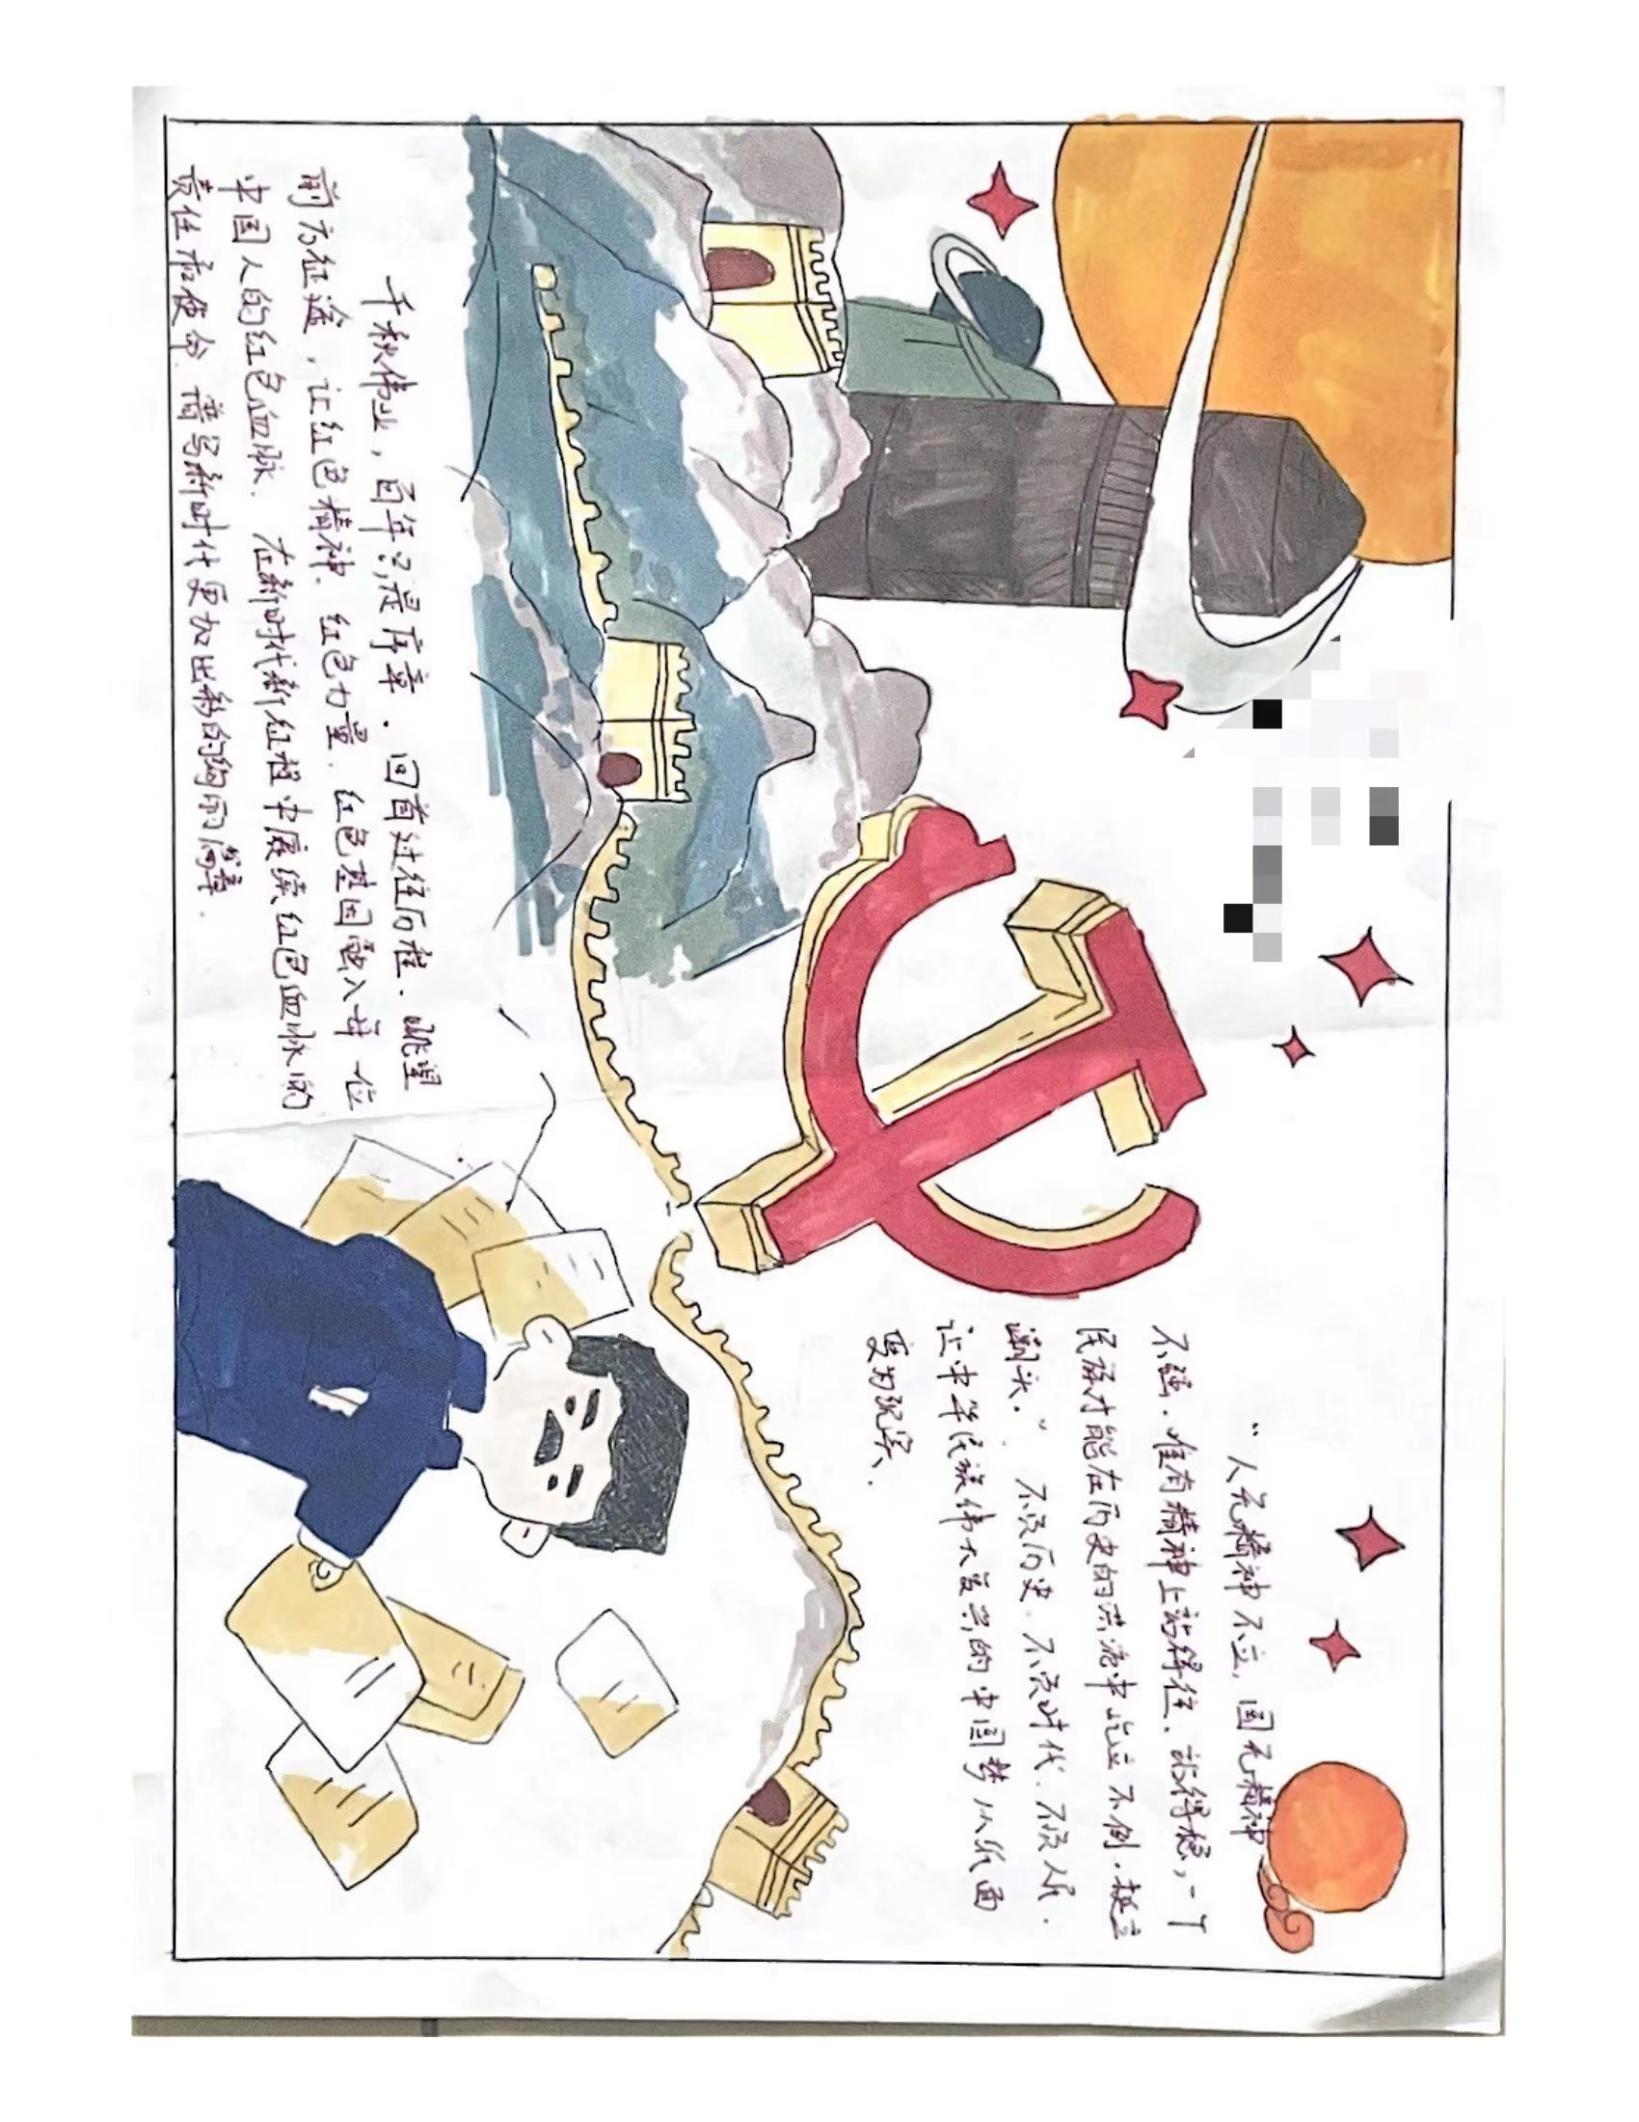 “人无精神不立,国无精神
不强.唯有精神上站得住、站得稳,一个
民族才能在历史的洪流中屹立不倒.挺立
潮头.”不负历史.不负时代.不负人民.
让中华民族伟大复兴的中国梦从此面
变为现实.
千秋伟业,百年只是序章.回首过往历程.眺望
前方征途,让红色精神.红色力量.红色基因融入每一位
中国人的红色血脉.在新时代新征程中赓续红色血脉的
责任和使命.谱写新时代更加出彩的绚丽篇章.